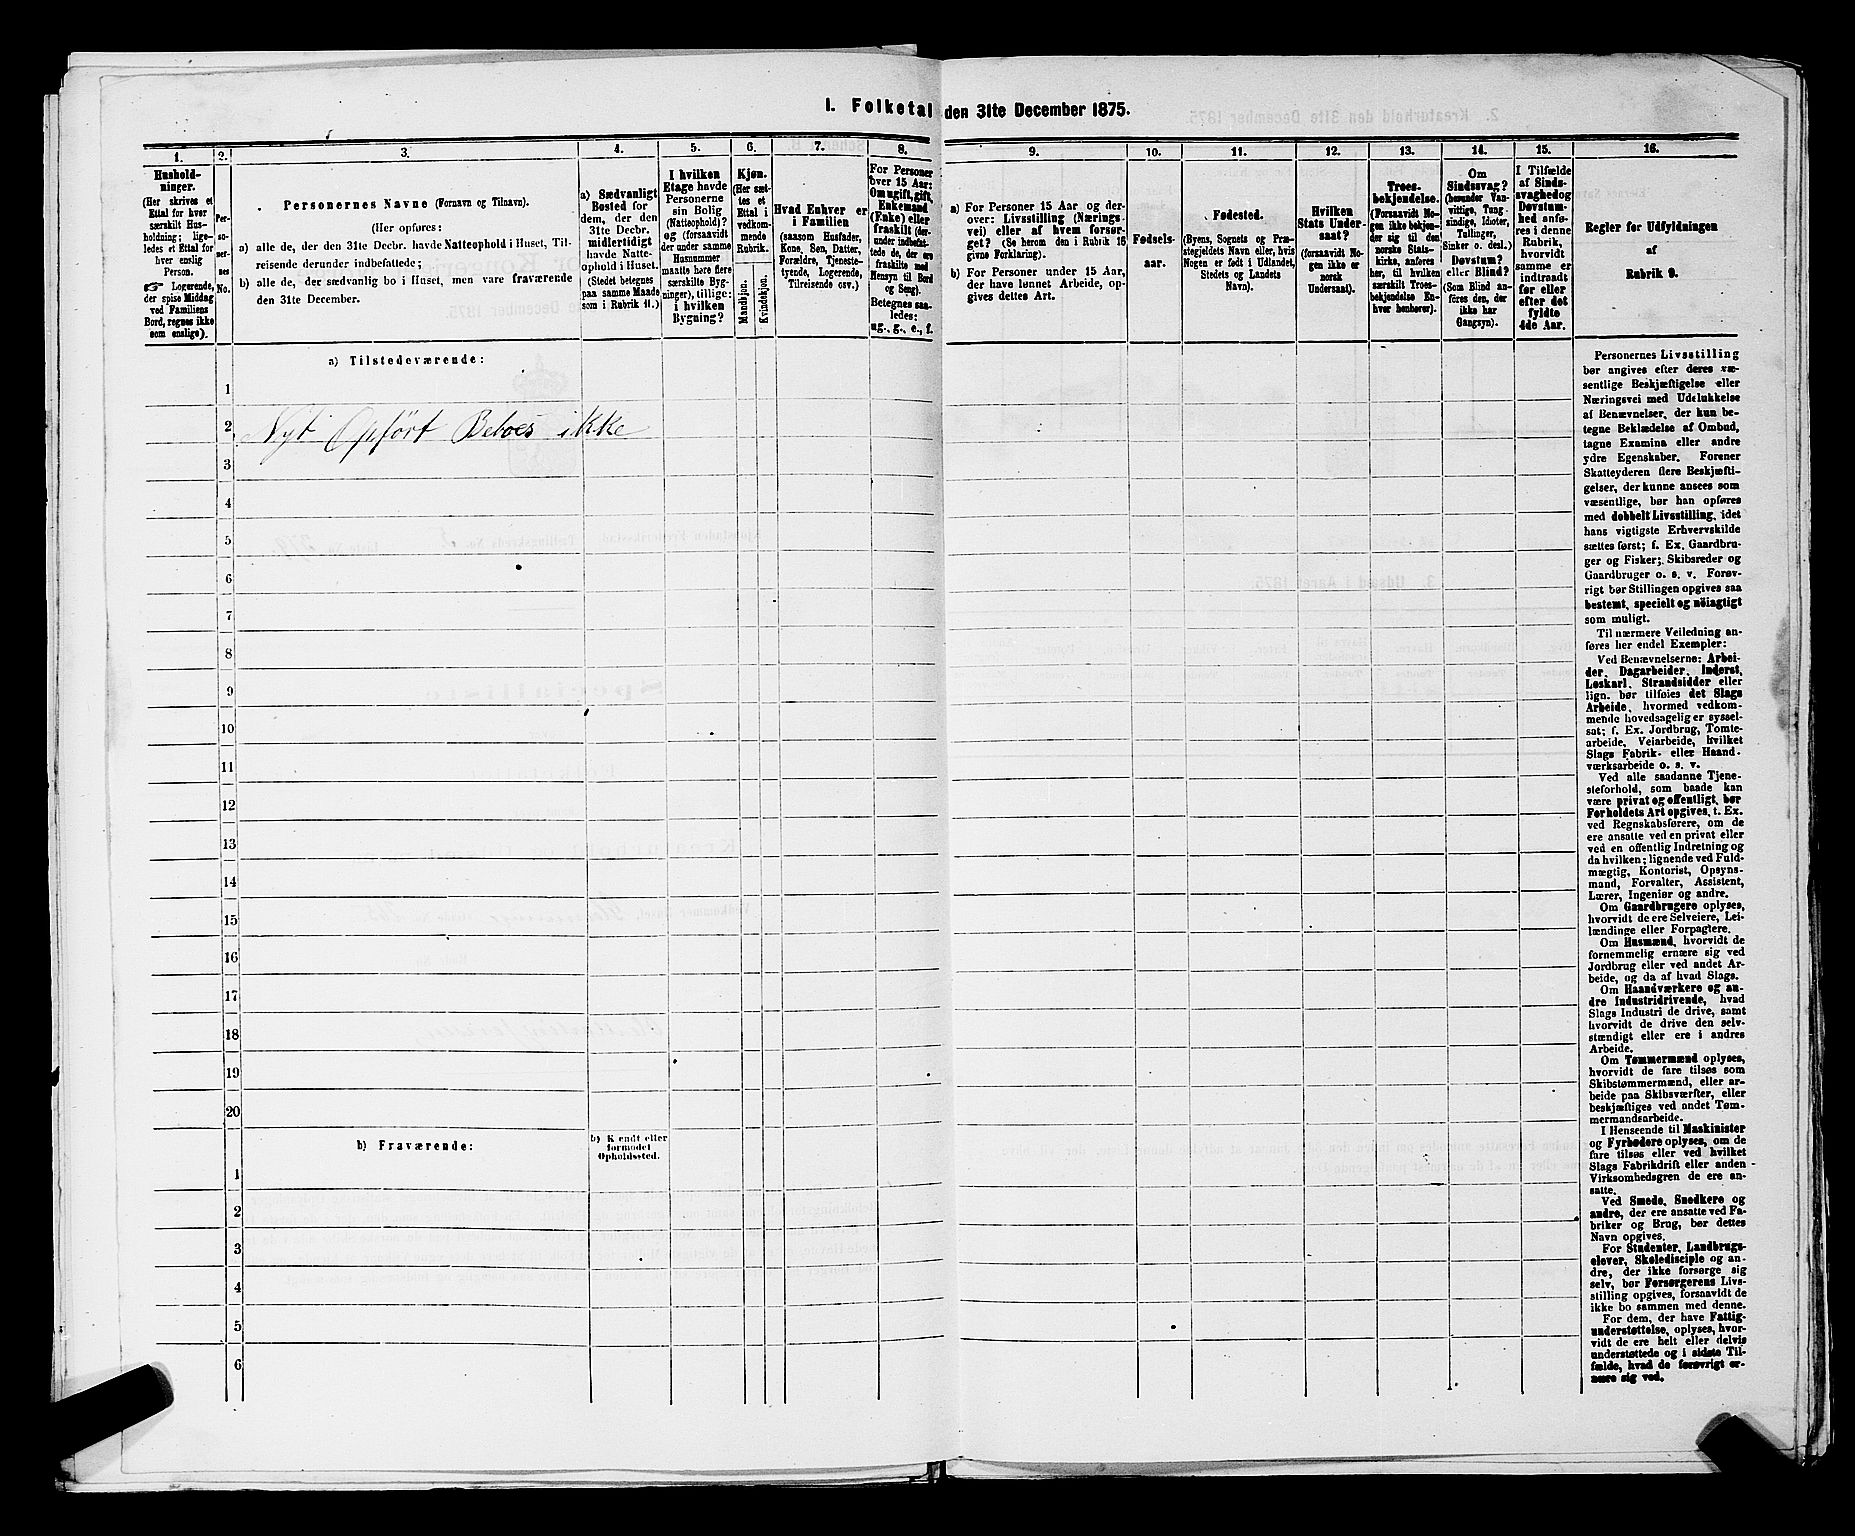 1. Folketal den 31te December 1875.
1.
Hushold-
ninger.
(Her skrives et
Ettal for hver
særskilt Hus-
holdning; lige-
ledes et Ettal for
hver enslig
Person.
☞ Logerende,
der spise Middag
ved Familiens
Bord, regnes ikke
som enslige).
2.
Per-
so-
ner-
nes
No.
3.
Personernes Navne (Fornavn og Tilnavn).
(Her opføres:
a) alle de, der den 31te Decbr. havde Natteophold i Huset, Til-
reisende derunder indbefattede;
b) alle de, der sædvanlig bo i Huset, men vare fraværende
den 31te December.
4.
a) Sædvanligt
Bosted for
dem, der den
31te Decbr.
midlertidigt
havde Natte-
ophold i Huset.
(Stedet betegnes
paa samme Maade
som i Rubrik 11.)
5.
I hvilken
Etage havde
Personerne
sin Bolig
(Natteophold)?
og (forsaavidt
der under samme
Husnummer
maatte høre flere
særskilte Byg-
ninger), tillige:
i hvilken
Bygning?
6.
Kjøn.
(Her sæt-
tes et
Ettal i
vedkom-
mende
Rubrik.
Mandkjøn.
Kvindekjøn.
7.
Hvad Enhver er
i Familien
(saasom Husfader,
Kone, Søn, Datter,
Forældre, Tjeneste-
tyende, Logerende,
Tilreisende osv.)
8.
For Personer
over 15 Aar:
Om ugift, gift,
Enkemand
(Enke) eller
fraskilt (der-
under indbefat-
tede de, der ere
fraskilte med
Hensyn til Bord
og Seng).
Betegnes saa-
ledes:
ug., g., e., f.
9.
a) For Personer 15 Aar og der-
over: Livsstilling (Nærings-
vei) eller af hvem forsør-
get? (Se herom den i Rubrik 16
givne Forklaring).
b) For Personer under 15 Aar,
der have lønnet Arbeide, op-
gives dettes Art.
10.
Fødsels-
aar.
11.
Fødested.
(Byens, Sognets og Præ-
stegjeldets Navn eller, hvis
Nogen er født i Udlandet,
Stedets og Landets
Navn).
12.
Hvilken
Stats Under-
saat?
(forsaavidt No-
gen ikke er
norsk
Undersaat).
13.
Troes-
bekjendelse.
(Forsaavidt No-
gen ikke bekjen-
der sig til den
norske Stats-
kirke, anføres
her, til hvilken
særskilt Troes-
bekjendelse En-
hver henhører).
14.
Om
Sindssvag?
(herunder Van-
vittige, Tung-
sindige, Idioter,
Tullinger,
Sinker o. desl.)
Døvstum?
eller Blind?
(Som Blind an-
føres den, der
ikke har
Gangsyn).
15.
I Tilfælde
af Sinds-
svaghed og
Døvstum-
hed anfø-
res i denne
Rubrik,
hvorvidt
samme er
indtraadt
før eller
efter det
fyldte
4de Aar.
16.
Regler for Udfyldningen
af
Rubrik 9.
a) Tilstedeværende:
1
2 Nyt Opført Beboes ikke
3
4
5
6
7
8
9
10
11
12
13
14
15
16
17
18
19
20
b) Fraværende:
b) Kjendt eller
formodet
Opholdssted.
1
2
3
4
5
6
Personernes Livsstilling
bør angives efter deres væ-
sentlige Beskjæftigelse eller
Næringsvei med Udelukkelse
af Benævnelser, der kun be-
tegne Beklædelse af Ombud,
tagne Examina eller andre
ydre Egenskaber. Forener
Skatteyderen flere Beskjæfti-
gelser, der kunne ansees som
væsentlige, bør han opføres
med dobbelt Livsstilling, idet
hans vigtigste Erhvervskilde
sættes først; f. Ex. Gaardbru-
ger og Fisker; Skibsreder og
Gaardbruger o. s. v. Forøv-
rigt bør Stillingen opgives saa
bestemt, specielt og nöiagtigt
som muligt.
Til nærmere Veiledning an-
føres her endel Exempler:
Ved Benævnelserne: Arbei-
der, Dagarbeider, Inderst,
Løskarl, Strandsidder eller
lign. bør tilføies det Slags
Arbeide, hvormed vedkom-
mende hovedsagelig er syssel-
sat; f. Ex. Jordbrug, Tomte-
arbeide, Veiarbeide, hvilket
Slags Fabrik- eller Haand-
værksarbeide o. s. v.
Ved alle saadanne Tjene-
steforhold, som baade kan
være privat og offentligt, bør
Forholdets Art opgives, f. Ex.
ved Regnskabsførere, om de
ere ansatte ved en privat eller
ved en offentlig Indretning og
da hvilken; lignende ved Fuld-
mægtig, Kontorist, Opsyns-
mand, Forvalter, Assistent,
Lærer, Ingeniør og andre.
Om Gaardbrugere oplyses,
hvorvidt de ere Selveiere, Lei-
lændinge eller Forpagtere.
Om Husmænd, hvorvidt de
fornemmelig ernære sig ved
Jordbrug eller ved andet Ar-
beide, og da af hvad Slags.
Om Haandværkere og an-
dre Industridrivende, hvad
Slags Industri de drive, samt
hvorvidt de drive den selv-
stændigt eller ere i andres
Arbeide.
Om Tømmermænd oplyses,
hvorvidt de fare tilsøs som
Skibstømmermænd, eller ar-
beide paa Skibsværfter, eller
beskjæftiges ved andet Tøm-
mermandsarbeide.
I Henseende til Maskinister
og Fyrbødere oplyses, om de
fare tilsøs eller ved hvilket
Slags Fabrikdrift eller anden
Virksomhedsgren de ere an-
satte.
Ved Smede, Snedkere og
andre, der ere ansatte ved Fa-
briker og Brug, bør dettes
Navn opgives.
For Studenter, Landbrugs-
elever, Skoledisciple og an-
dre, der ikke forsørge sig
selv, bør Forsørgerens Livs-
stilling opgives, forsaavidt de
ikke bo sammen med denne.
For dem, der have Fattig-
understøttelse, oplyses, hvor-
vidt de ere helt eller delvis
understøttede og i sidste Til-
fælde, hvad de forøvrigt er-
nære sig ved.